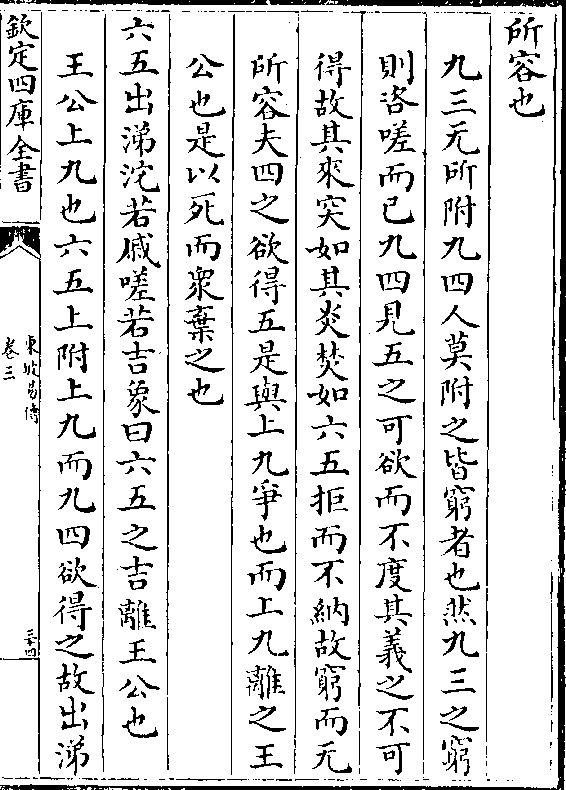 所容也
九三无所附九四人莫附之皆窮者也然九三之窮
則咨嗟而已九四見五之可欲而不度其義之不可
得故其來突如其炎焚如六五拒而不納故窮而无
所容夫四之欲得五是與上九爭也而上九離之王
公也是以死而衆棄之也
六五出涕沱若戚嗟若吉象曰六五之吉離王公也
王公上九也六五上附上九而九四欲得之故出涕
欽定四庫全書
東坡易傳
卷三
三十四